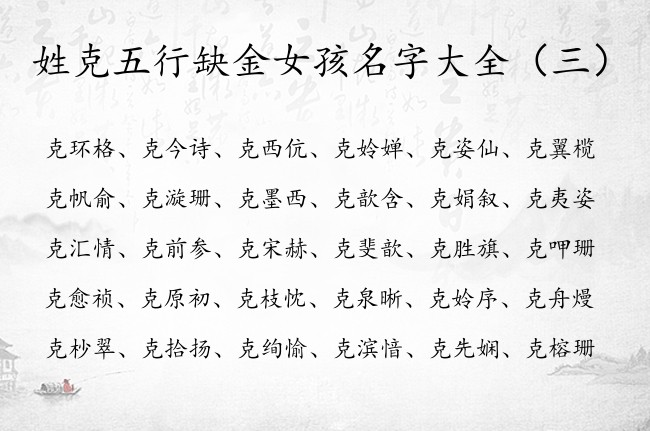 姓克五行缺金女孩名字大全（三）
克环格、克今诗、克西伉、克姈婵、克姿仙、克翼榄
克帆俞、克漩珊、克墨西、克歆含、克娟叙、克夷姿
克汇情、克前参、克宋赫、克斐歆、克胜旗、克呷珊
克愈祯、克原初、克枝忱、克泉晰、克姈序、克舟熳
克杪翠、克拾扬、克绚愉、克滨愔、克先娴、克榕珊